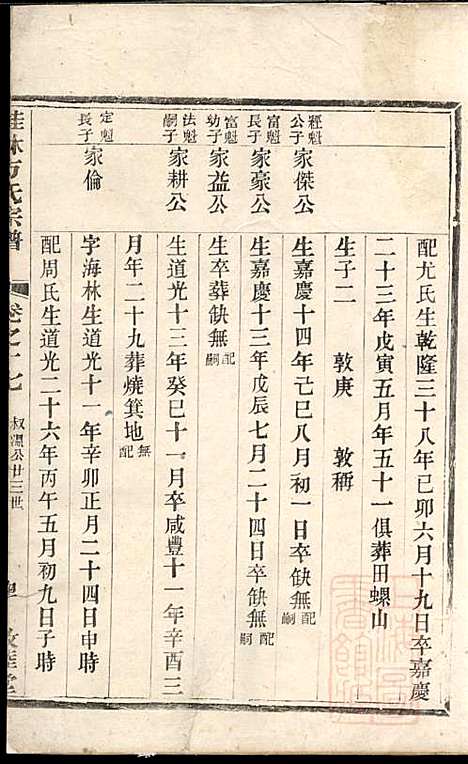 配尤氏生乾隆三十八年己卯六月十九日卒嘉慶
二十三年戊寅五月年五十一俱葬田螺山
生子二 敦庚 敦稱
經魁公子 家傑公 生嘉慶十四年己巳八月初一日卒缺無配嗣
富魁長子 家豪公 生嘉慶十三年戊辰七月二十四日卒缺無配嗣
富魁幼子 家益公 生卒葬缺無配嗣
法魁嗣子 家耕公 生道光十三年癸巳十一月卒咸豐十一年辛酉三
月年二十九葬燒箕地無配
定魁長子 家倫 字海林生道光十一年辛卯正月二十四日申時
配周氏生道光二十六年丙午五月初九日子時
桂林方氏宗譜 卷之十七 叔淵公廿三世